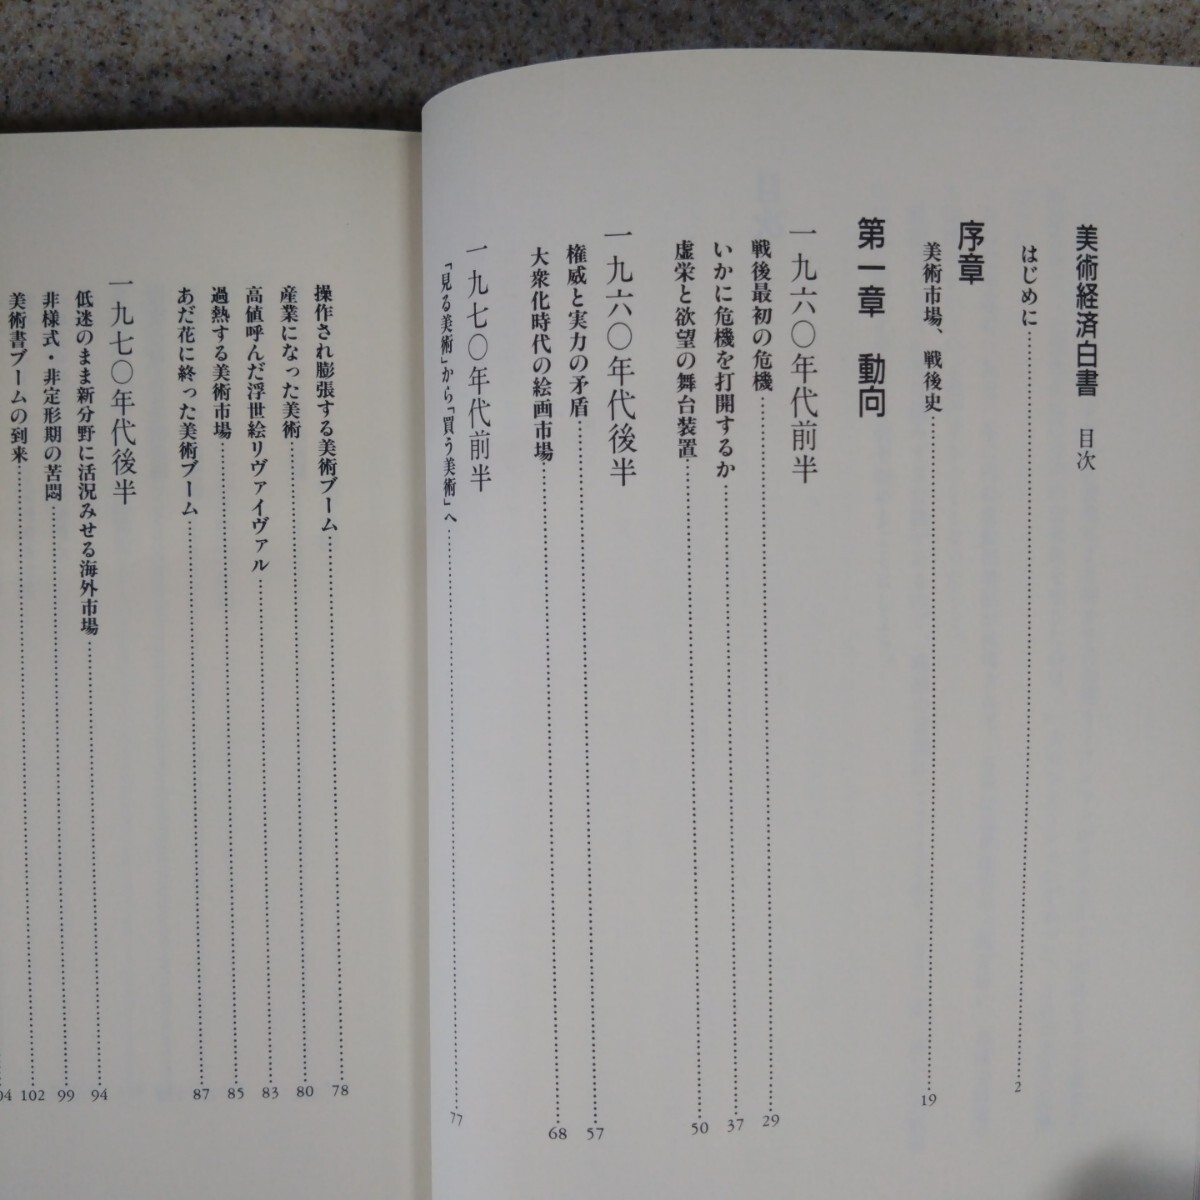 美術経済白書 目次
はじめに 2
序章
美術市場、戦後史 19
第一章 動向
一九六〇年代前半
戦後最初の危機 29
いかに危機を打開するか 37
虚栄と欲望の舞台装置 50
一九六〇年代後半
権威と実力の矛盾 57
大衆化時代の絵画市場 68
一九七〇年代前半
「見る美術」から「買う美術」へ 77
操作され膨張する美術ブーム 78
産業になった美術 80
高値呼んだ浮世絵リヴァイヴァル 83
過熱する美術市場 85
あだ花に終った美術ブーム 87
一九七〇年代後半
低迷のまま新分野に活況みせる海外市場 94
非様式・非定形期の苦悶 99
美術書ブームの到来 102